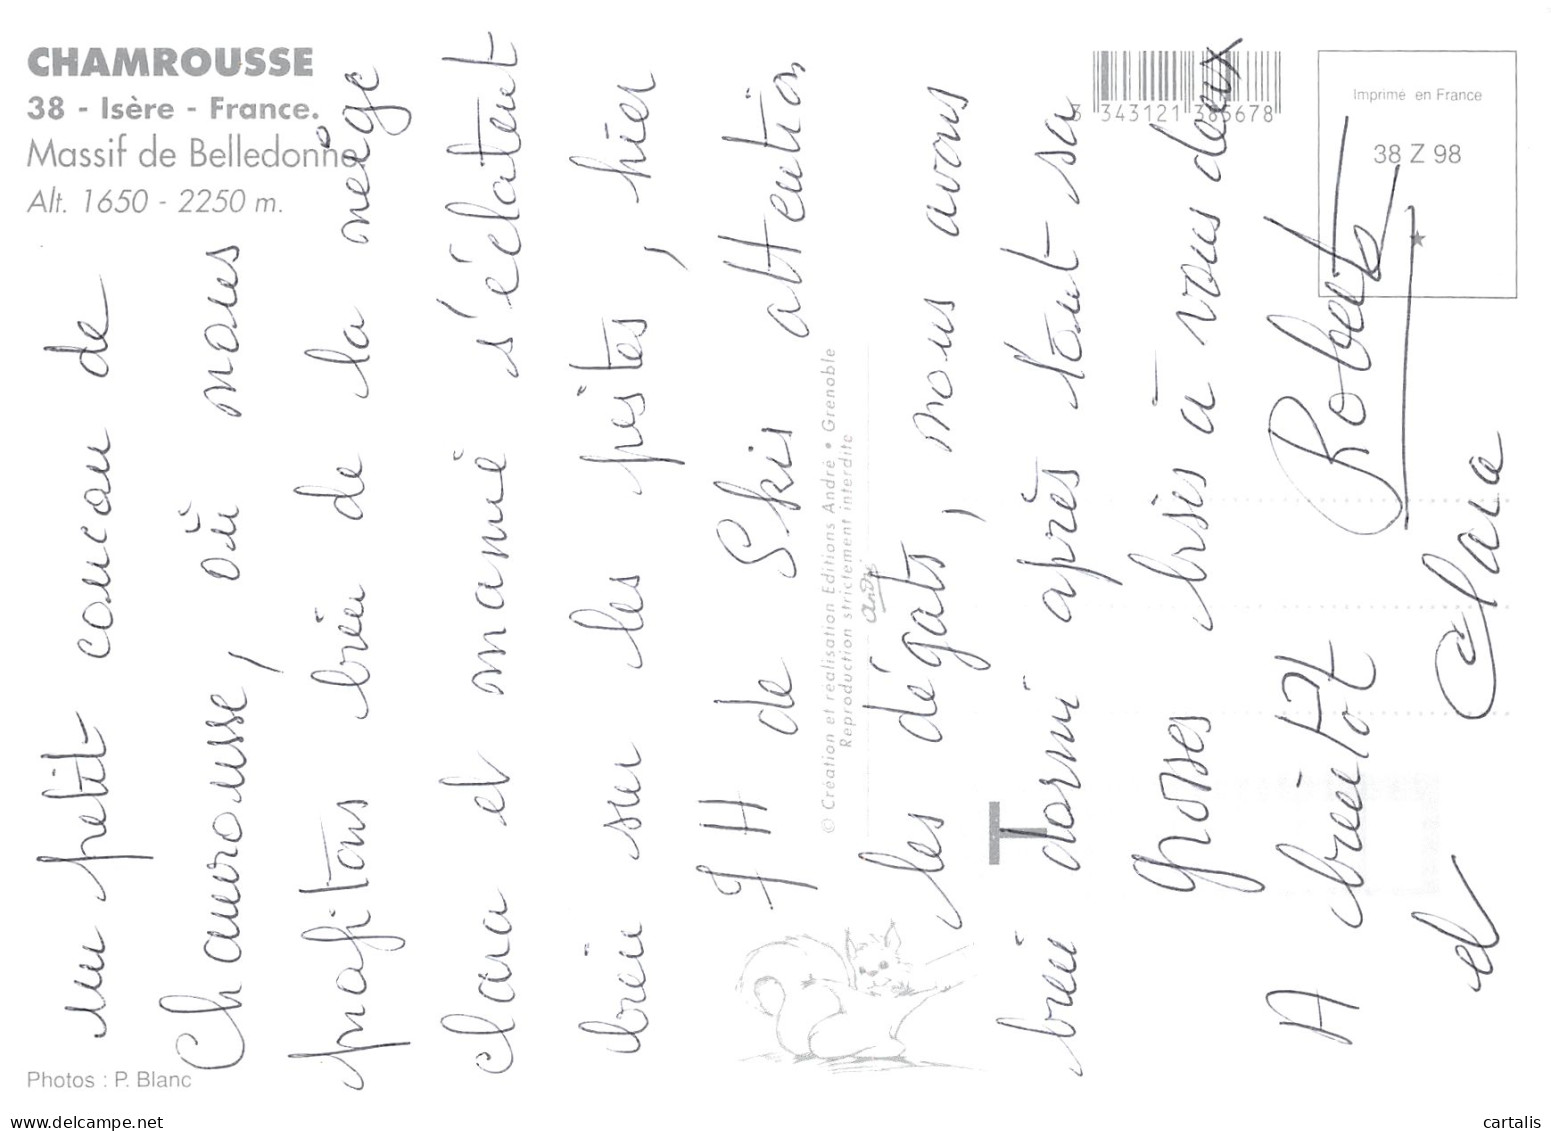 CHAMROUSSE
38 - Isère - France.
Massif de Belledonne
Alt. 1650 - 2250 m.
3 343121 385678
Imprimé en France
38 Z 98
un petit coucou de
Chamrousse, où nous
profitons bien de la neige
Clara et mamie s'éclatent
bien sur les pistes, hier
7H de Skis attention
les dégats, nous avons
bien dormi après tout sa
Grosses bises à vous deux
A bientôt Roberto
et Clara
© Création et réalisation Editions André • Grenoble
Reproduction strictement interdite
André
Photos : P. Blanc
www.delcampe.net
cartalis